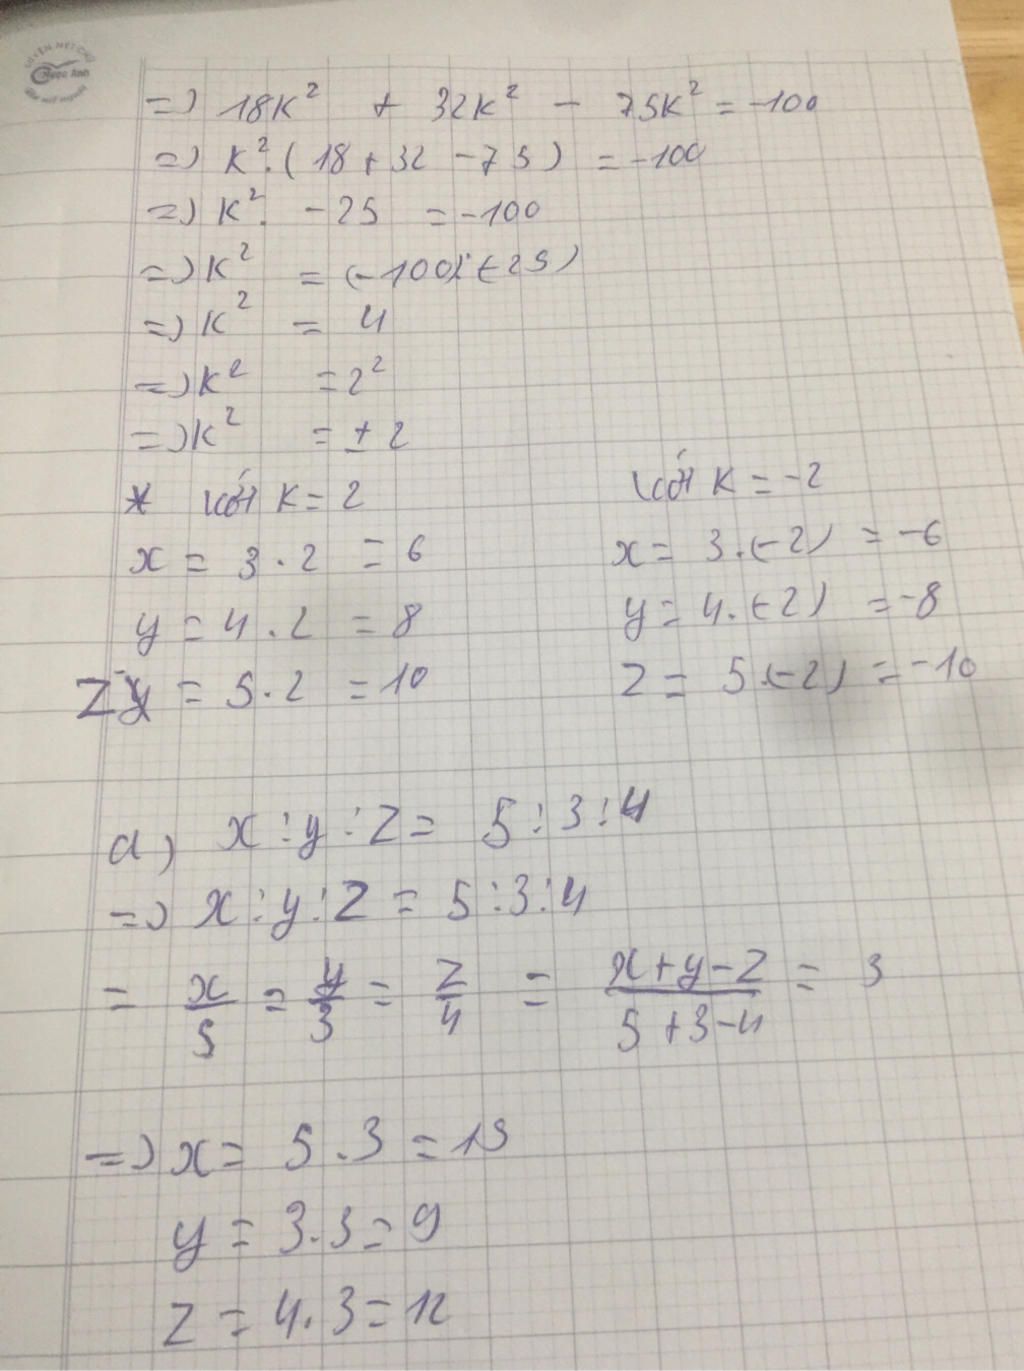 LUYỆN NÉT CHỮ
Ngọc Anh
=> 18K² + 32K² - 75K² = -100
=> K².(18+32-75) = -100
=> K². -25 = -100
=> K² = (-100):(-25)
=> K² = 4
=> K² = 2²
=> K² = ± 2
* với K = 2
x = 3.2 = 6
y = 4.2 = 8
Z = 5.2 = 10
với K = -2
x = 3.(-2) = -6
y = 4.(-2) = -8
Z = 5.(-2) = -10
d) x:y:Z = 5:3:4
=> x:y:Z = 5:3:4
= x/5 = y/3 = Z/4 = (x+y-Z)/(5+3-4) = 3
=> x = 5.3 = 15
y = 3.3 = 9
Z = 4.3 = 12